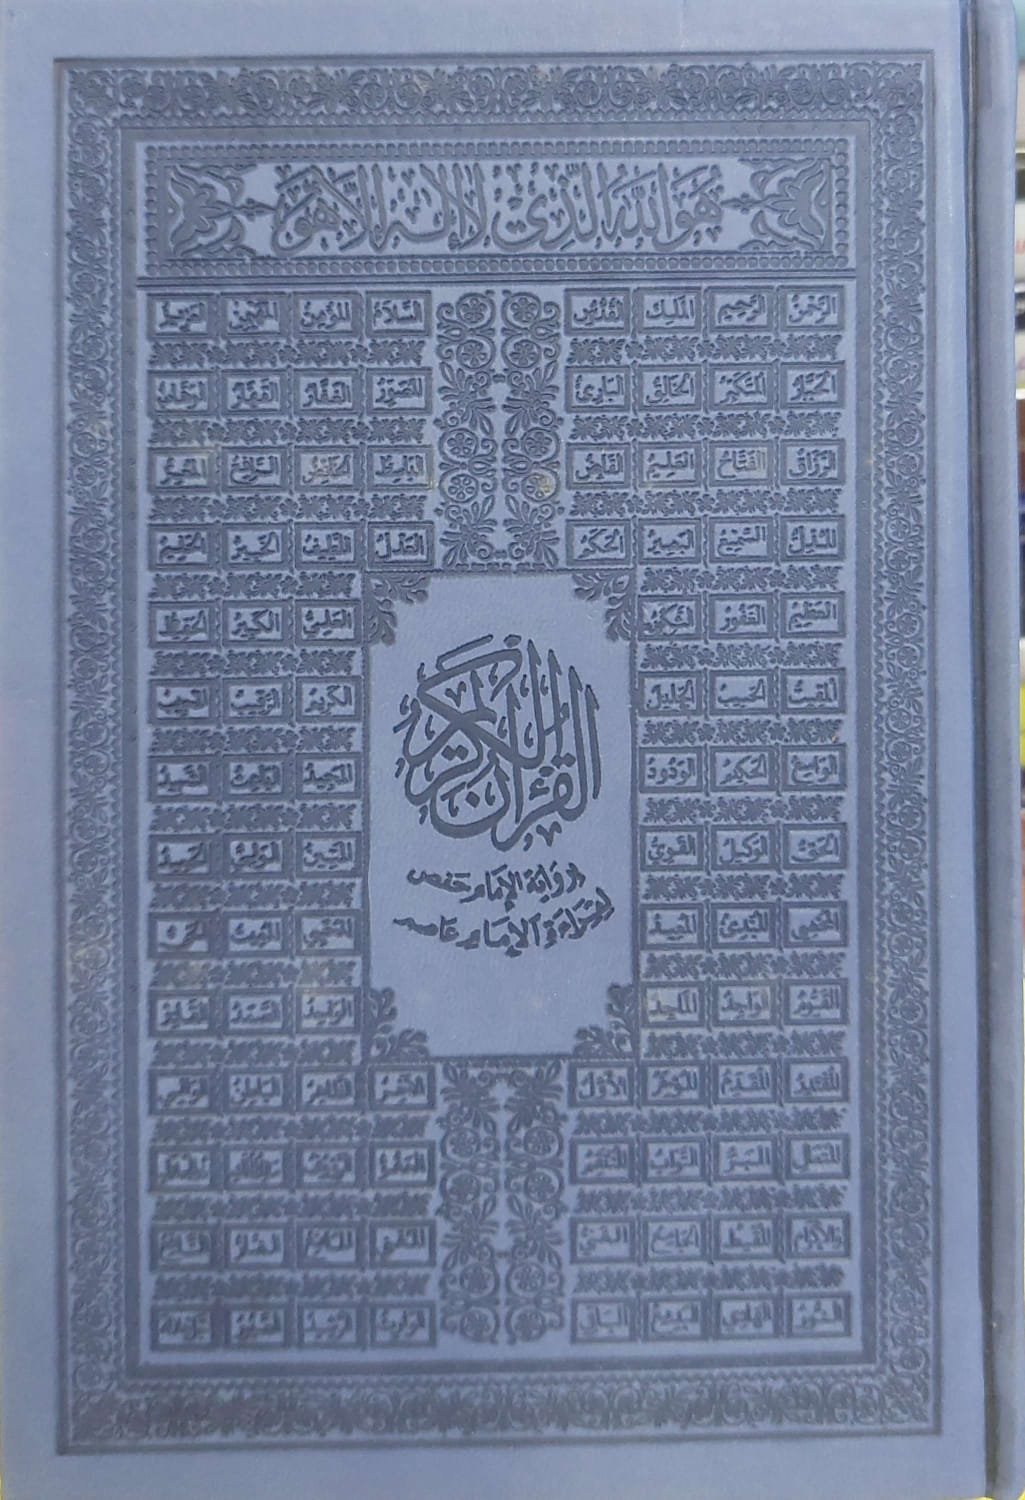 هو الله الذي لا إله إلا هو
الرحمن الرحيم الملك القدوس السلام المؤمن المهيمن العزيز
الجبار المتكبر الخالق البارئ المصور الغفار القهار الوهاب
الرزاق الفتاح العليم القابض الباسط الخافض الرافع المعز
المذل السميع البصير الحكم العدل اللطيف الخبير الحليم
العظيم الغفور الشكور العلي الكبير الحفيظ
المقيت الحسيب الجليل الكريم الرقيب المجيب
الواسع الحكيم الودود المجيد الباعث الشهيد
القرآن الكريم
الحق الوكيل القوي المتين الولي الحميد
برواية الإمام حفص
لقراءة الإمام عاصم
المحصي المبدئ المعيد المحيي المميت الحي
القيوم الواجد الماجد الواحد الصمد القادر
المقتدر المقدم المؤخر الأول الآخر الظاهر الباطن الوالي
المتعال البر التواب المنتقم العفو الرؤف
والإكرام المقسط الجامع الغني المغني المانع الضار النافع
النور الهادي البديع الباقي الوارث الرشيد الصبور